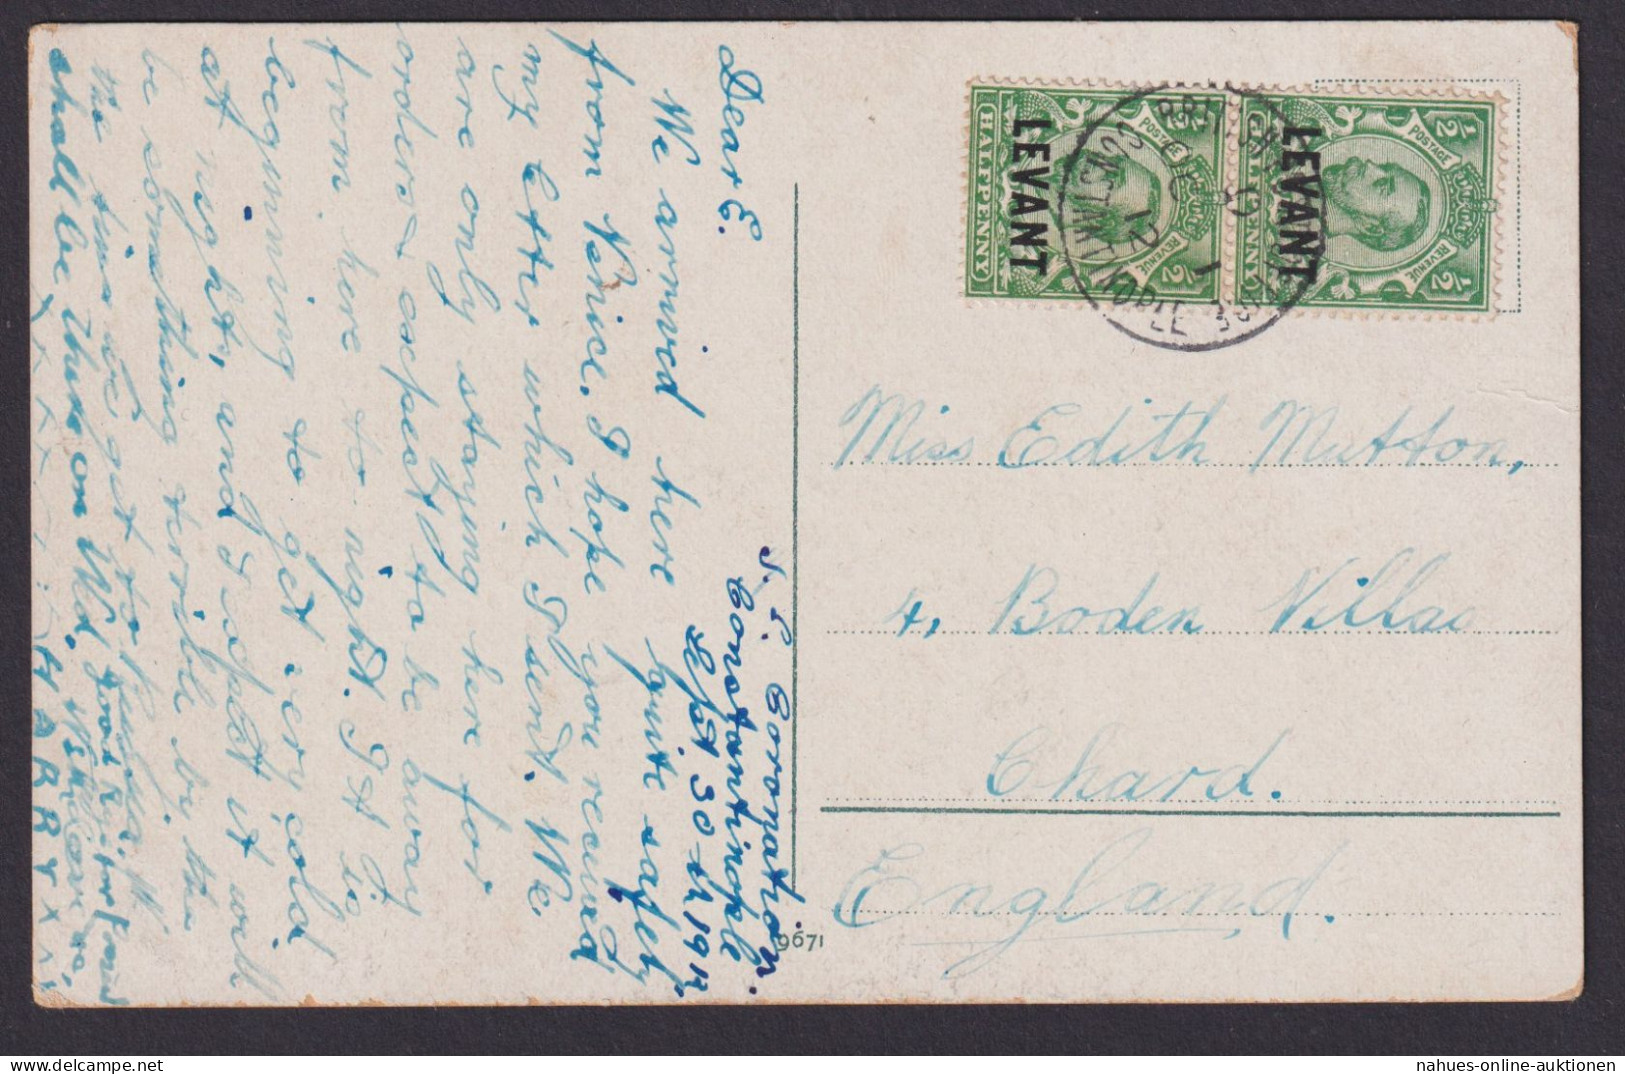 S. S. Coronation.
Constantinople
Sept 30th 1912.
Dear E.
We arrived here quite safely
from Venice. I hope you received
my letter which I sent. We
are only staying here for
orders & expect to be away
from here to night. It is
beginning to get very cold
at nights, and I expect it will
be something terrible by the
the time we get to
shall be there on Wed.
HARRY X X
Miss Edith Mutton,
4, Boden Villas
Chard.
England.
9671
LEVANT
HALFPENNY
POSTAGE
REVENUE
½
½
LEVANT
HALFPENNY
POSTAGE
REVENUE
½
½
BRITISH POST OFFICE
CONSTANTINOPLE
12
nahues-online-auktionen